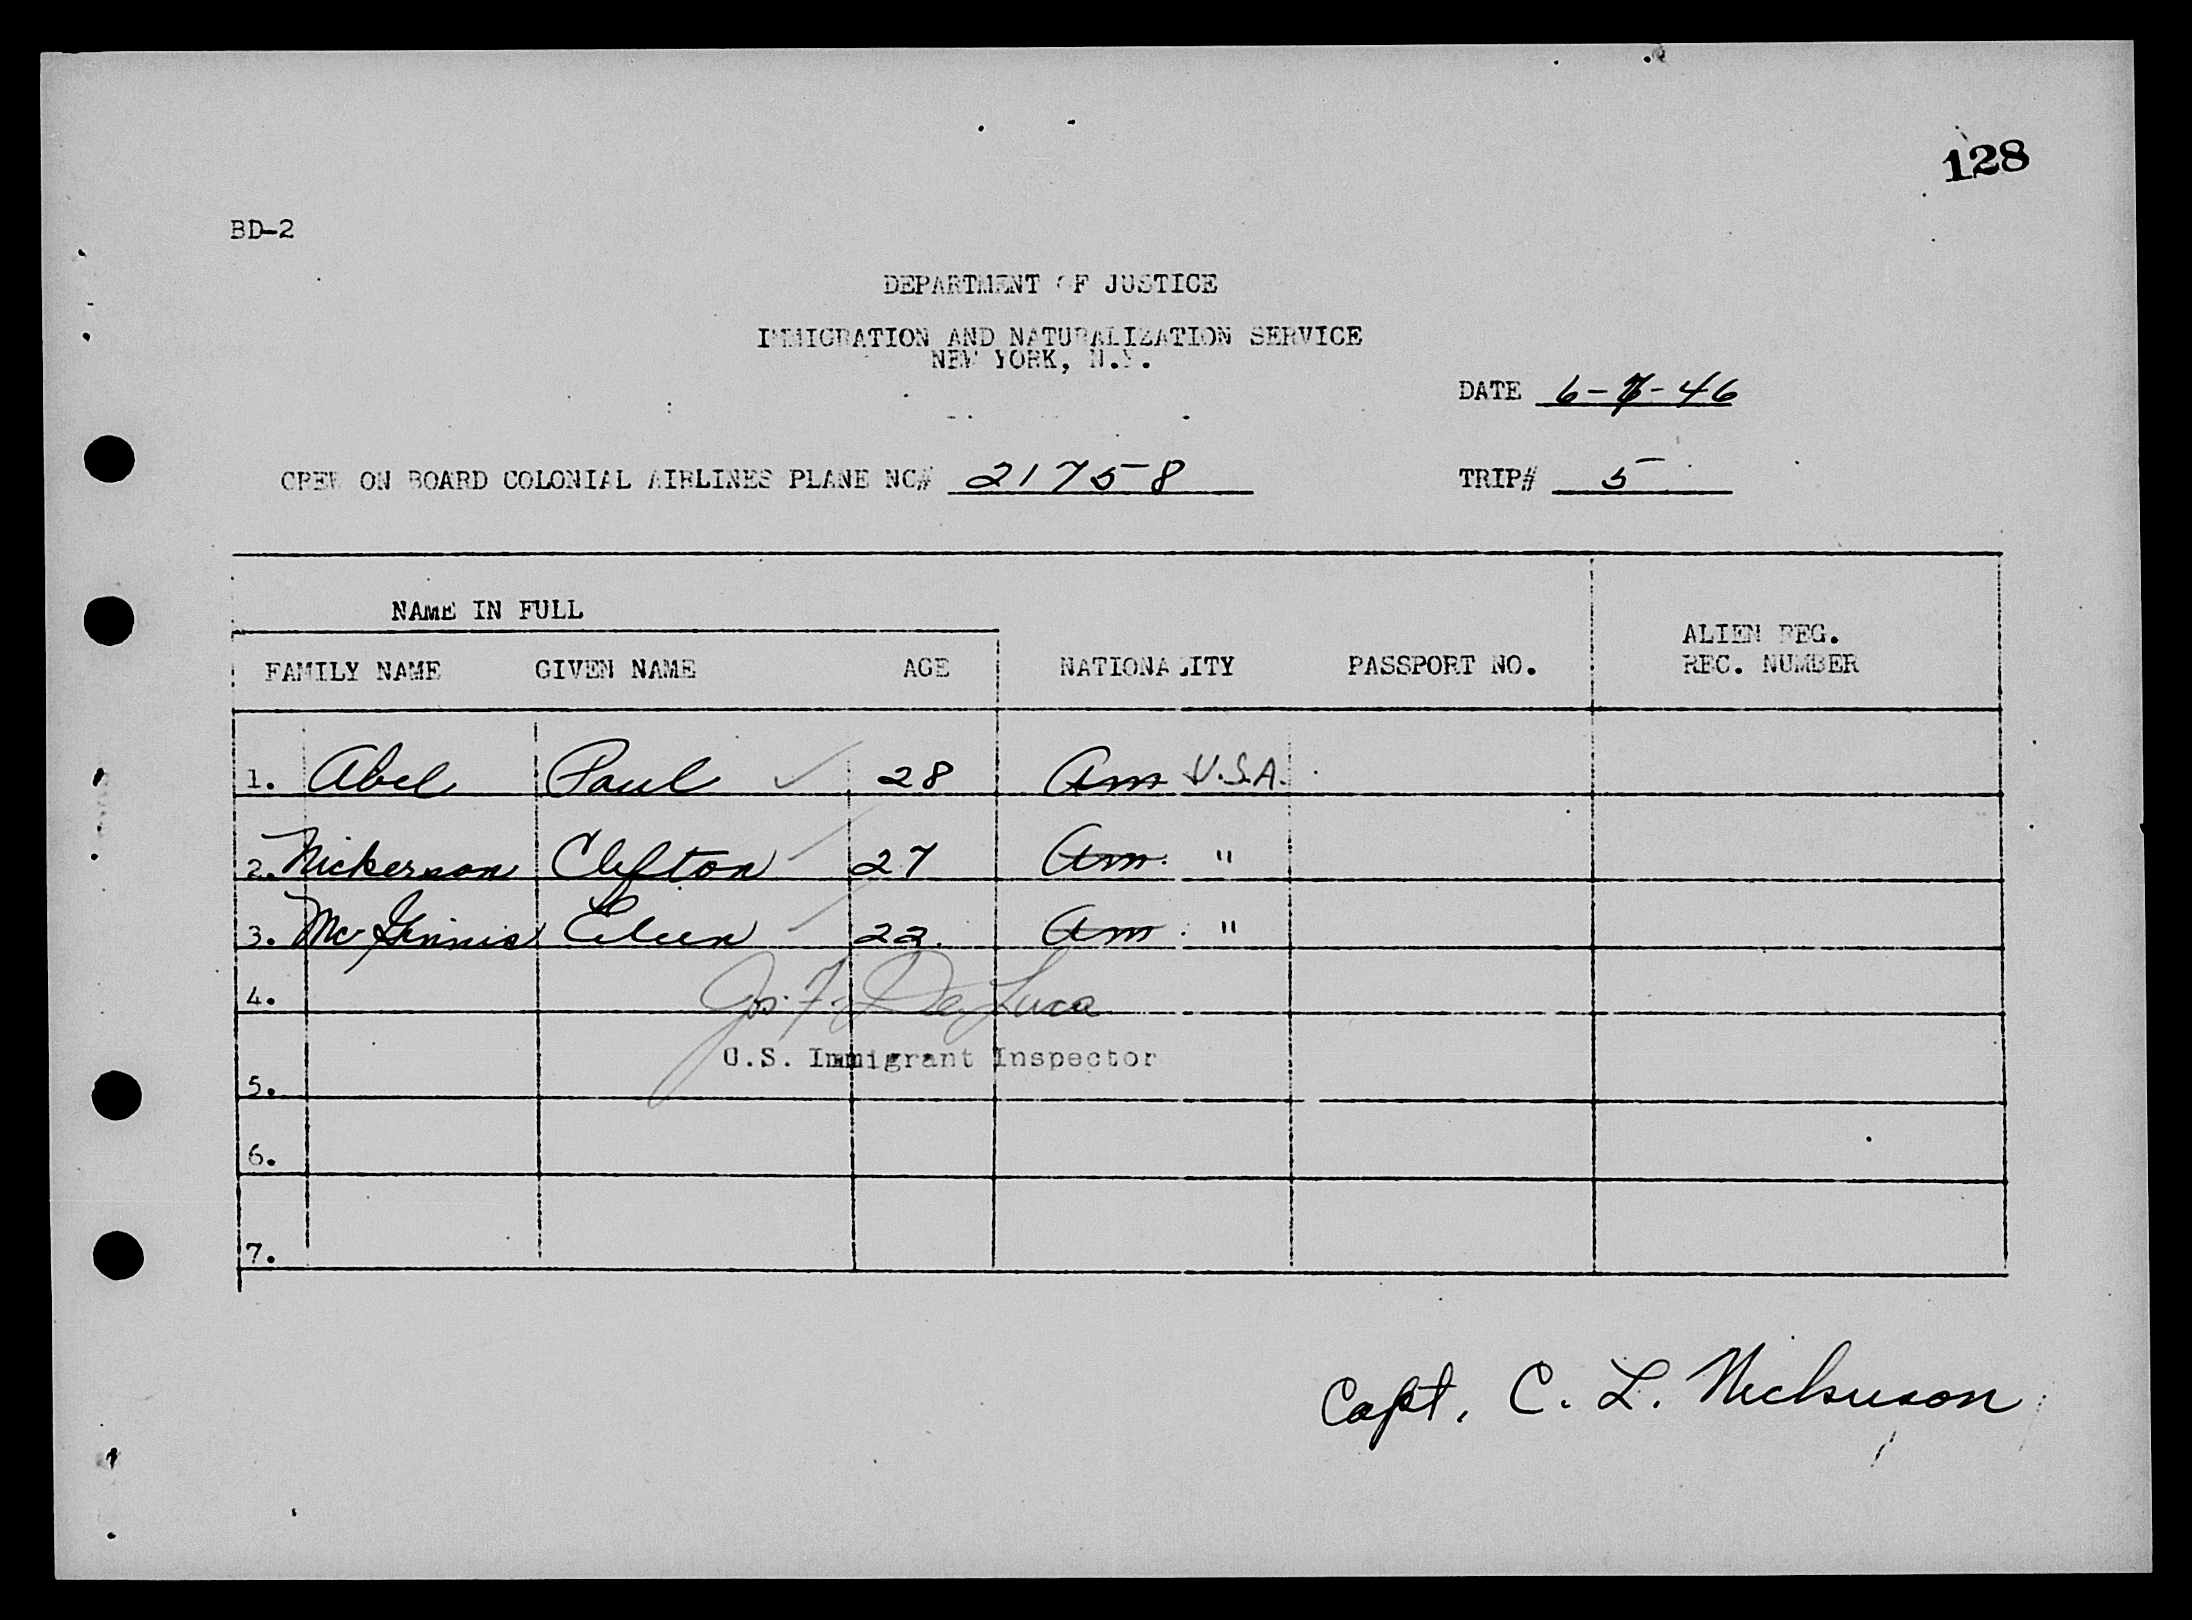 128
BD-2
DEPARTMENT OF JUSTICE
IMMIGRATION AND NATURALIZATION SERVICE
NEW YORK, N.Y.
DATE 6-7-46
CREW ON BOARD COLONIAL AIRLINES PLANE NC# 21758 TRIP# 5
NAME IN FULL
FAMILY NAME GIVEN NAME AGE NATIONALITY PASSPORT NO. ALIEN REG. REC. NUMBER
1. Abel Paul 28 Am U.S.A.
2. Nickerson Clifton 27 Am. "
3. McGinnis Eileen 22. Am. "
4.
Jos. F. DeLuca
U.S. Immigrant Inspector
5.
6.
7.
Capt. C. L. Nickerson